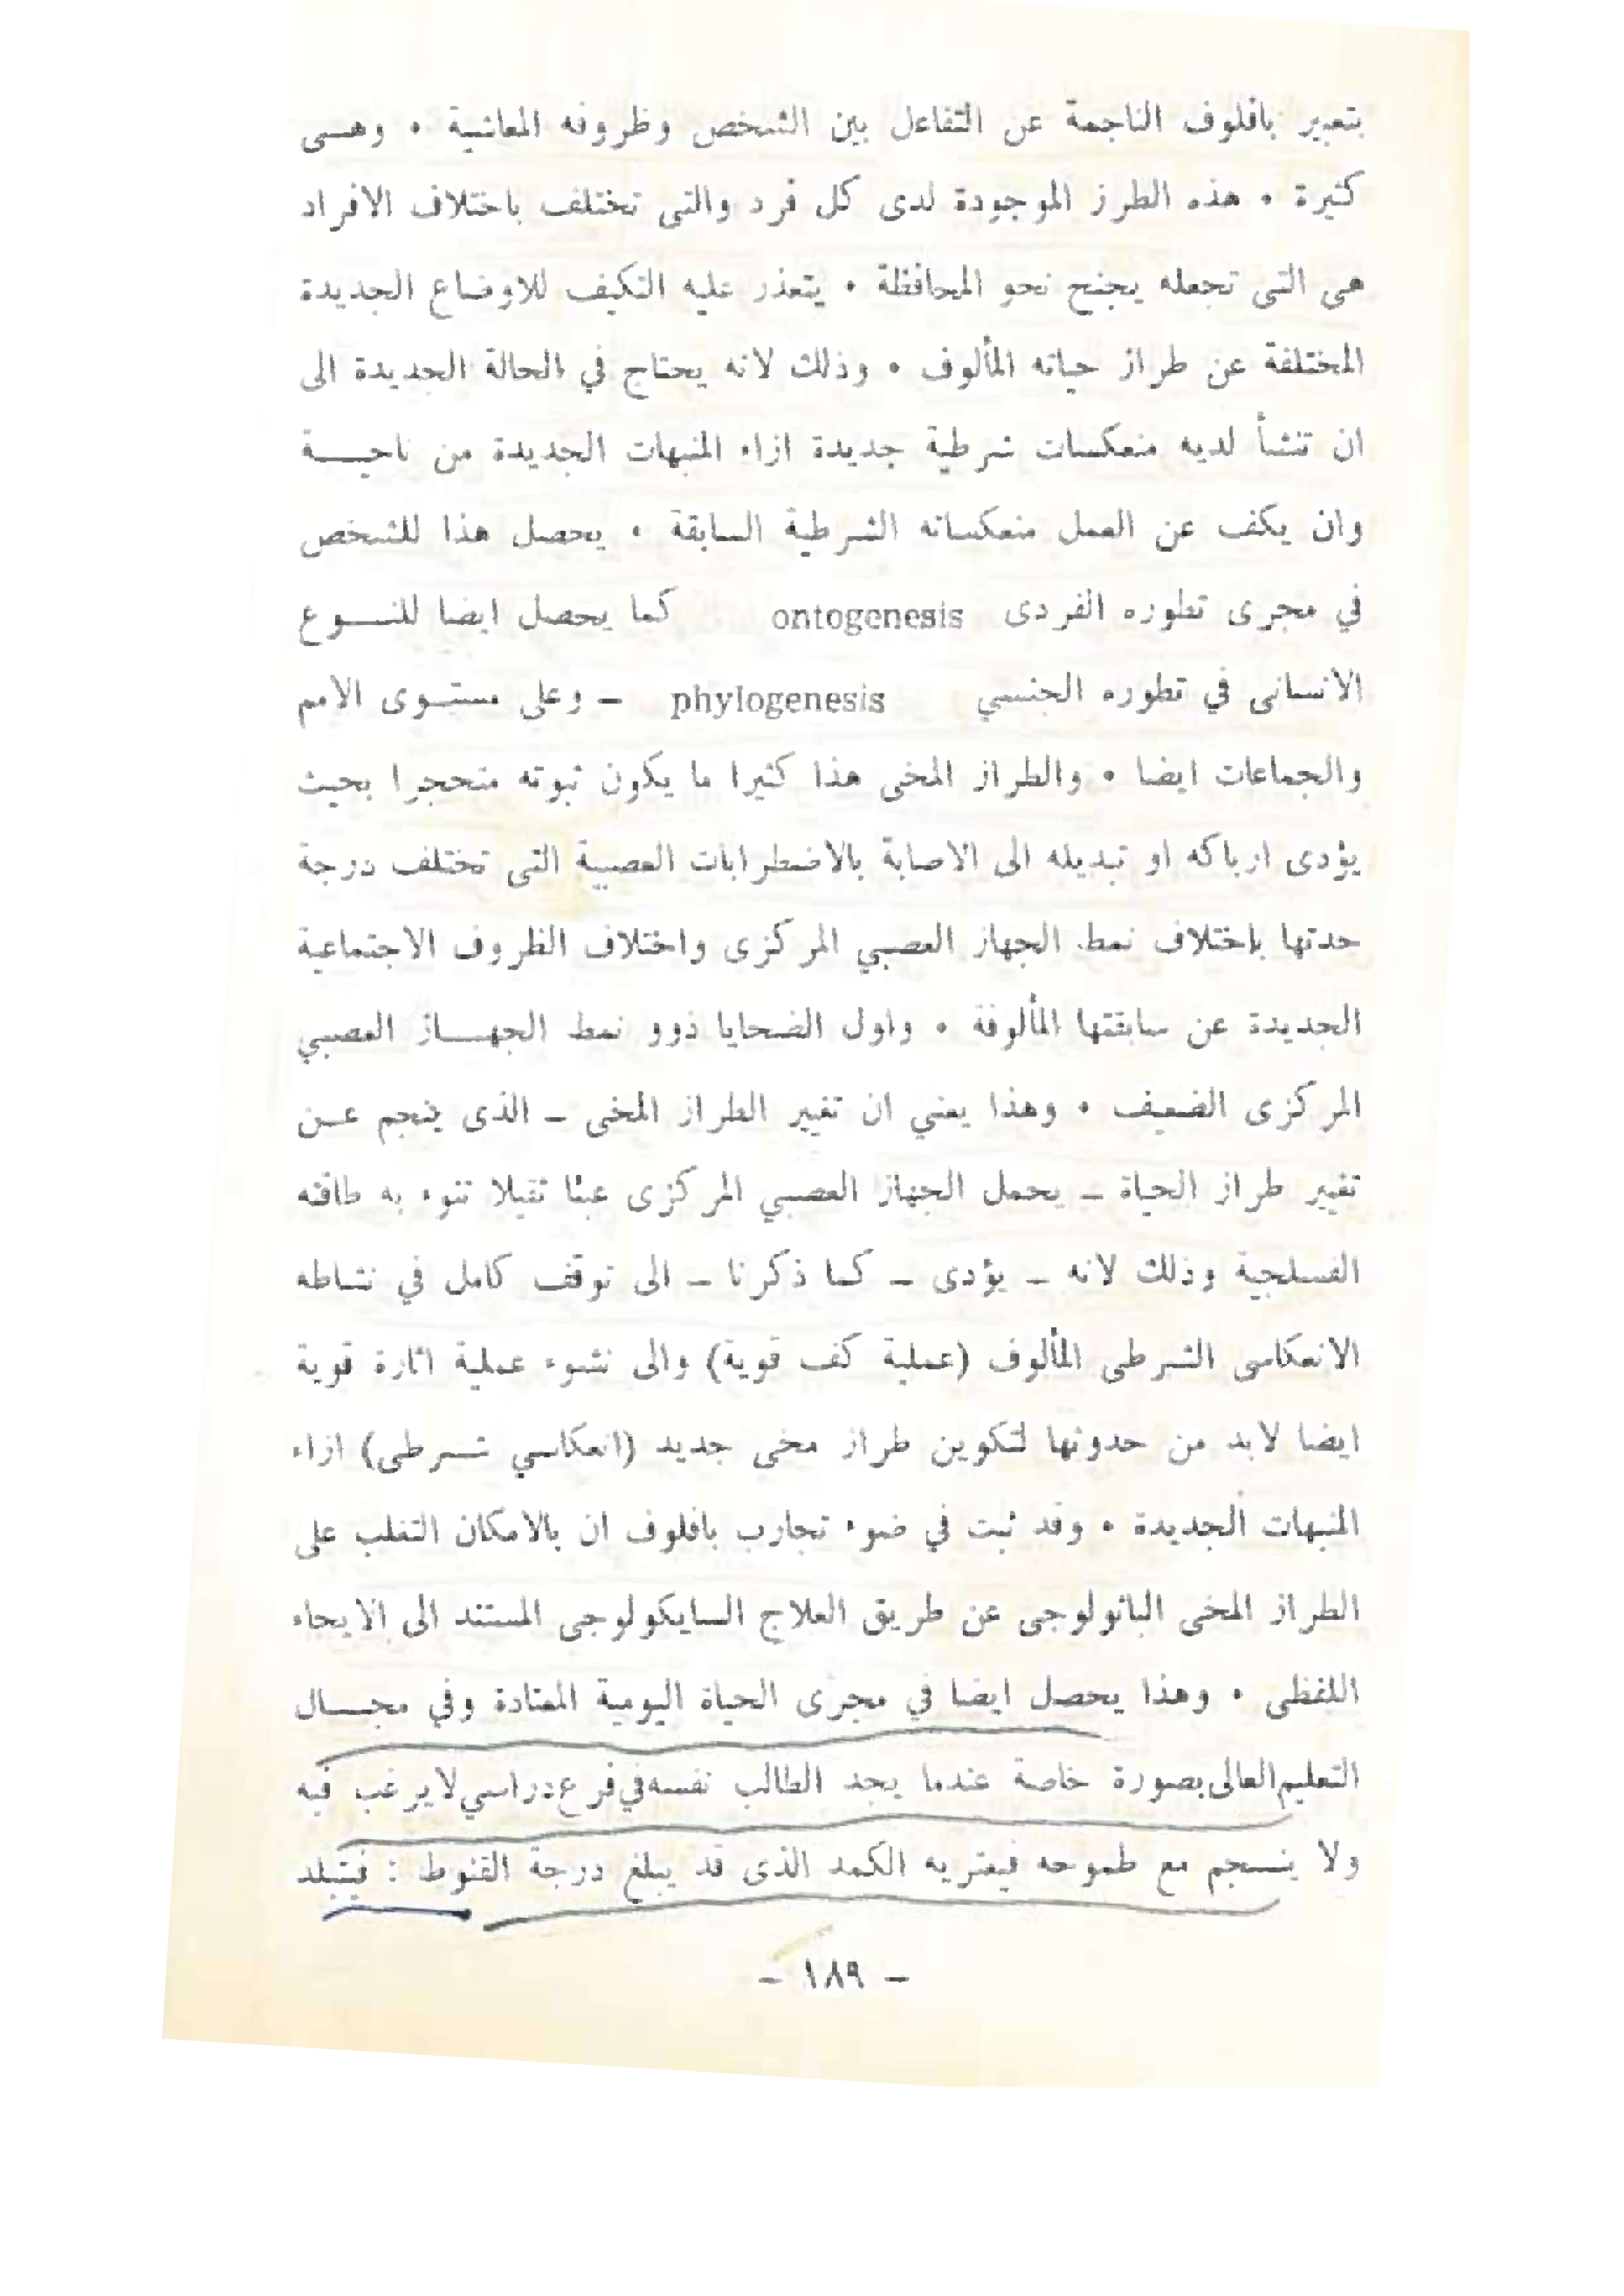 بتعبير بافلوف الناجمة عن التفاعل بين الشخص وظروفه المعاشية • وهـــى
كثيرة • هذه الطرز الموجودة لدى كل فرد والتى تختلف باختلاف الافراد
هى التى تجعله يجنح نحو المحافظة • يتعذر عليه التكيف للاوضاع الجديدة
المختلفة عن طراز حياته المألوف • وذلك لانه يحتاج في الحالة الجديدة الى
ان تنشأ لديه منعكسات شرطية جديدة ازاء المنبهات الجديدة من ناحيـــة
وان يكف عن العمل منعكساته الشرطية السابقة • يحصل هذا للشخص
في مجرى تطوره الفردى ontogenesis كما يحصل ايضا للنـــوع
الانسانى في تطوره الجنسي phylogenesis – وعلى مستـوى الامم
والجماعات ايضا • والطراز المخى هذا كثيرا ما يكون ثبوته متحجرا بحيث
يؤدى ارباكه او تبديله الى الاصابة بالاضطرابات العصبية التى تختلف درجة
حدتها بإختلاف نمط الجهاز العصبي المركزى واختلاف الظروف الاجتماعية
الجديدة عن سابقتها المألوفة • واول الضحايا ذوو نمط الجهـــاز العصبي
المركزى الضعيف • وهذا يعني ان تغيير الطراز المخى – الذى ينجم عـن
تغيير طراز الحياة – يحمل الجهاز العصبي المركزى عبئا ثقيلا تنوء به طاقته
الفسلجية وذلك لانه – يؤدى – كما ذكرنا – الى توقف كامل في نشاطه
الانعكاسى الشرطى المألوف (عملية كف قوية) والى نشوء عملية اثارة قوية
ايضا لابد من حدوثها لتكوين طراز مخى جديد (انعكاسي شـرطى) ازاء
المنبهات الجديدة • وقد ثبت في ضوء تجارب بافلوف ان بالامكان التغلب على
الطراز المخى الباثولوجى عن طريق العلاج السايكولوجى المستند الى الايحاء
اللفظى • وهذا يحصل ايضا في مجرى الحياة اليومية المعتادة وفي مجـــال
التعليم العالى بصورة خاصة عندما يجد الطالب نفسه في فرع دراسي لا يرغب فيه
ولا ينسجم مع طموحه فيعتريه الكمد الذى قد يبلغ درجة القنوط : فيتبلد
– ١٨٩ –